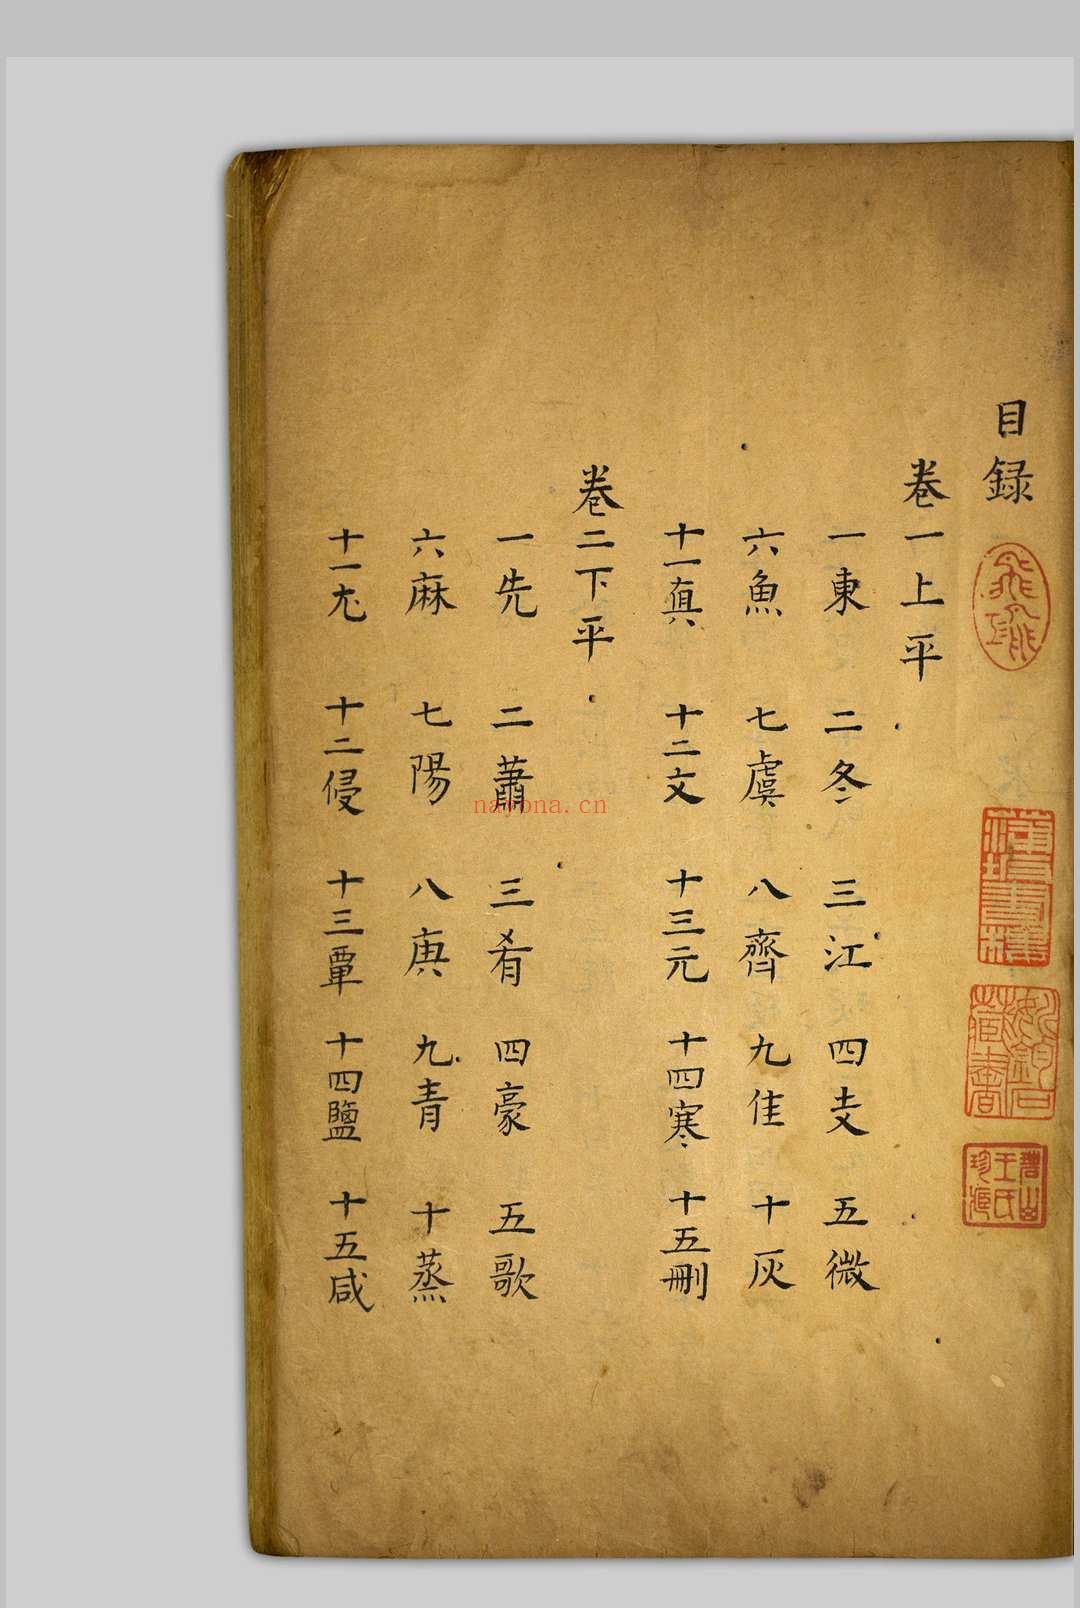 目録
卷一上平
一東 二冬 三江 四支 五微
六魚 七虞 八齊 九佳 十灰
十一真 十二文 十三元 十四寒 十五刪
卷二下平
一先 二蕭 三肴 四豪 五歌
六麻 七陽 八庚 九青 十蒸
十一尤 十二侵 十三覃 十四鹽 十五咸
碧山王氏珍藏
nayona.cn